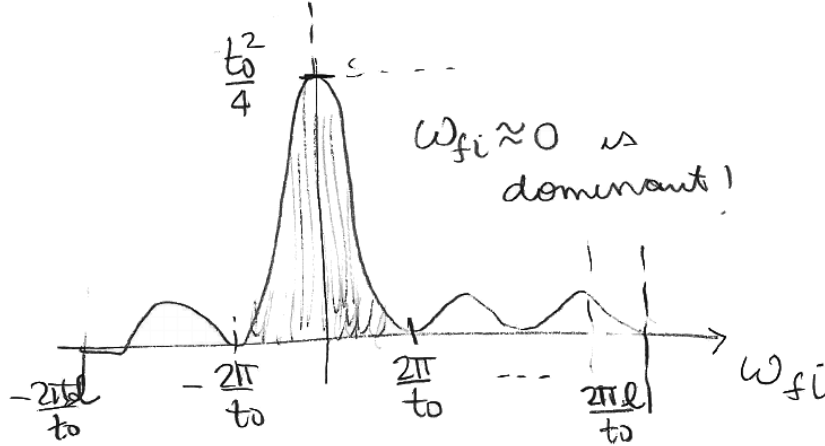 t₀²/4
ω_fi ≈ 0 is
dominant!
-2πl/t₀
-2π/t₀
2π/t₀
---
2πl/t₀
ω_fi